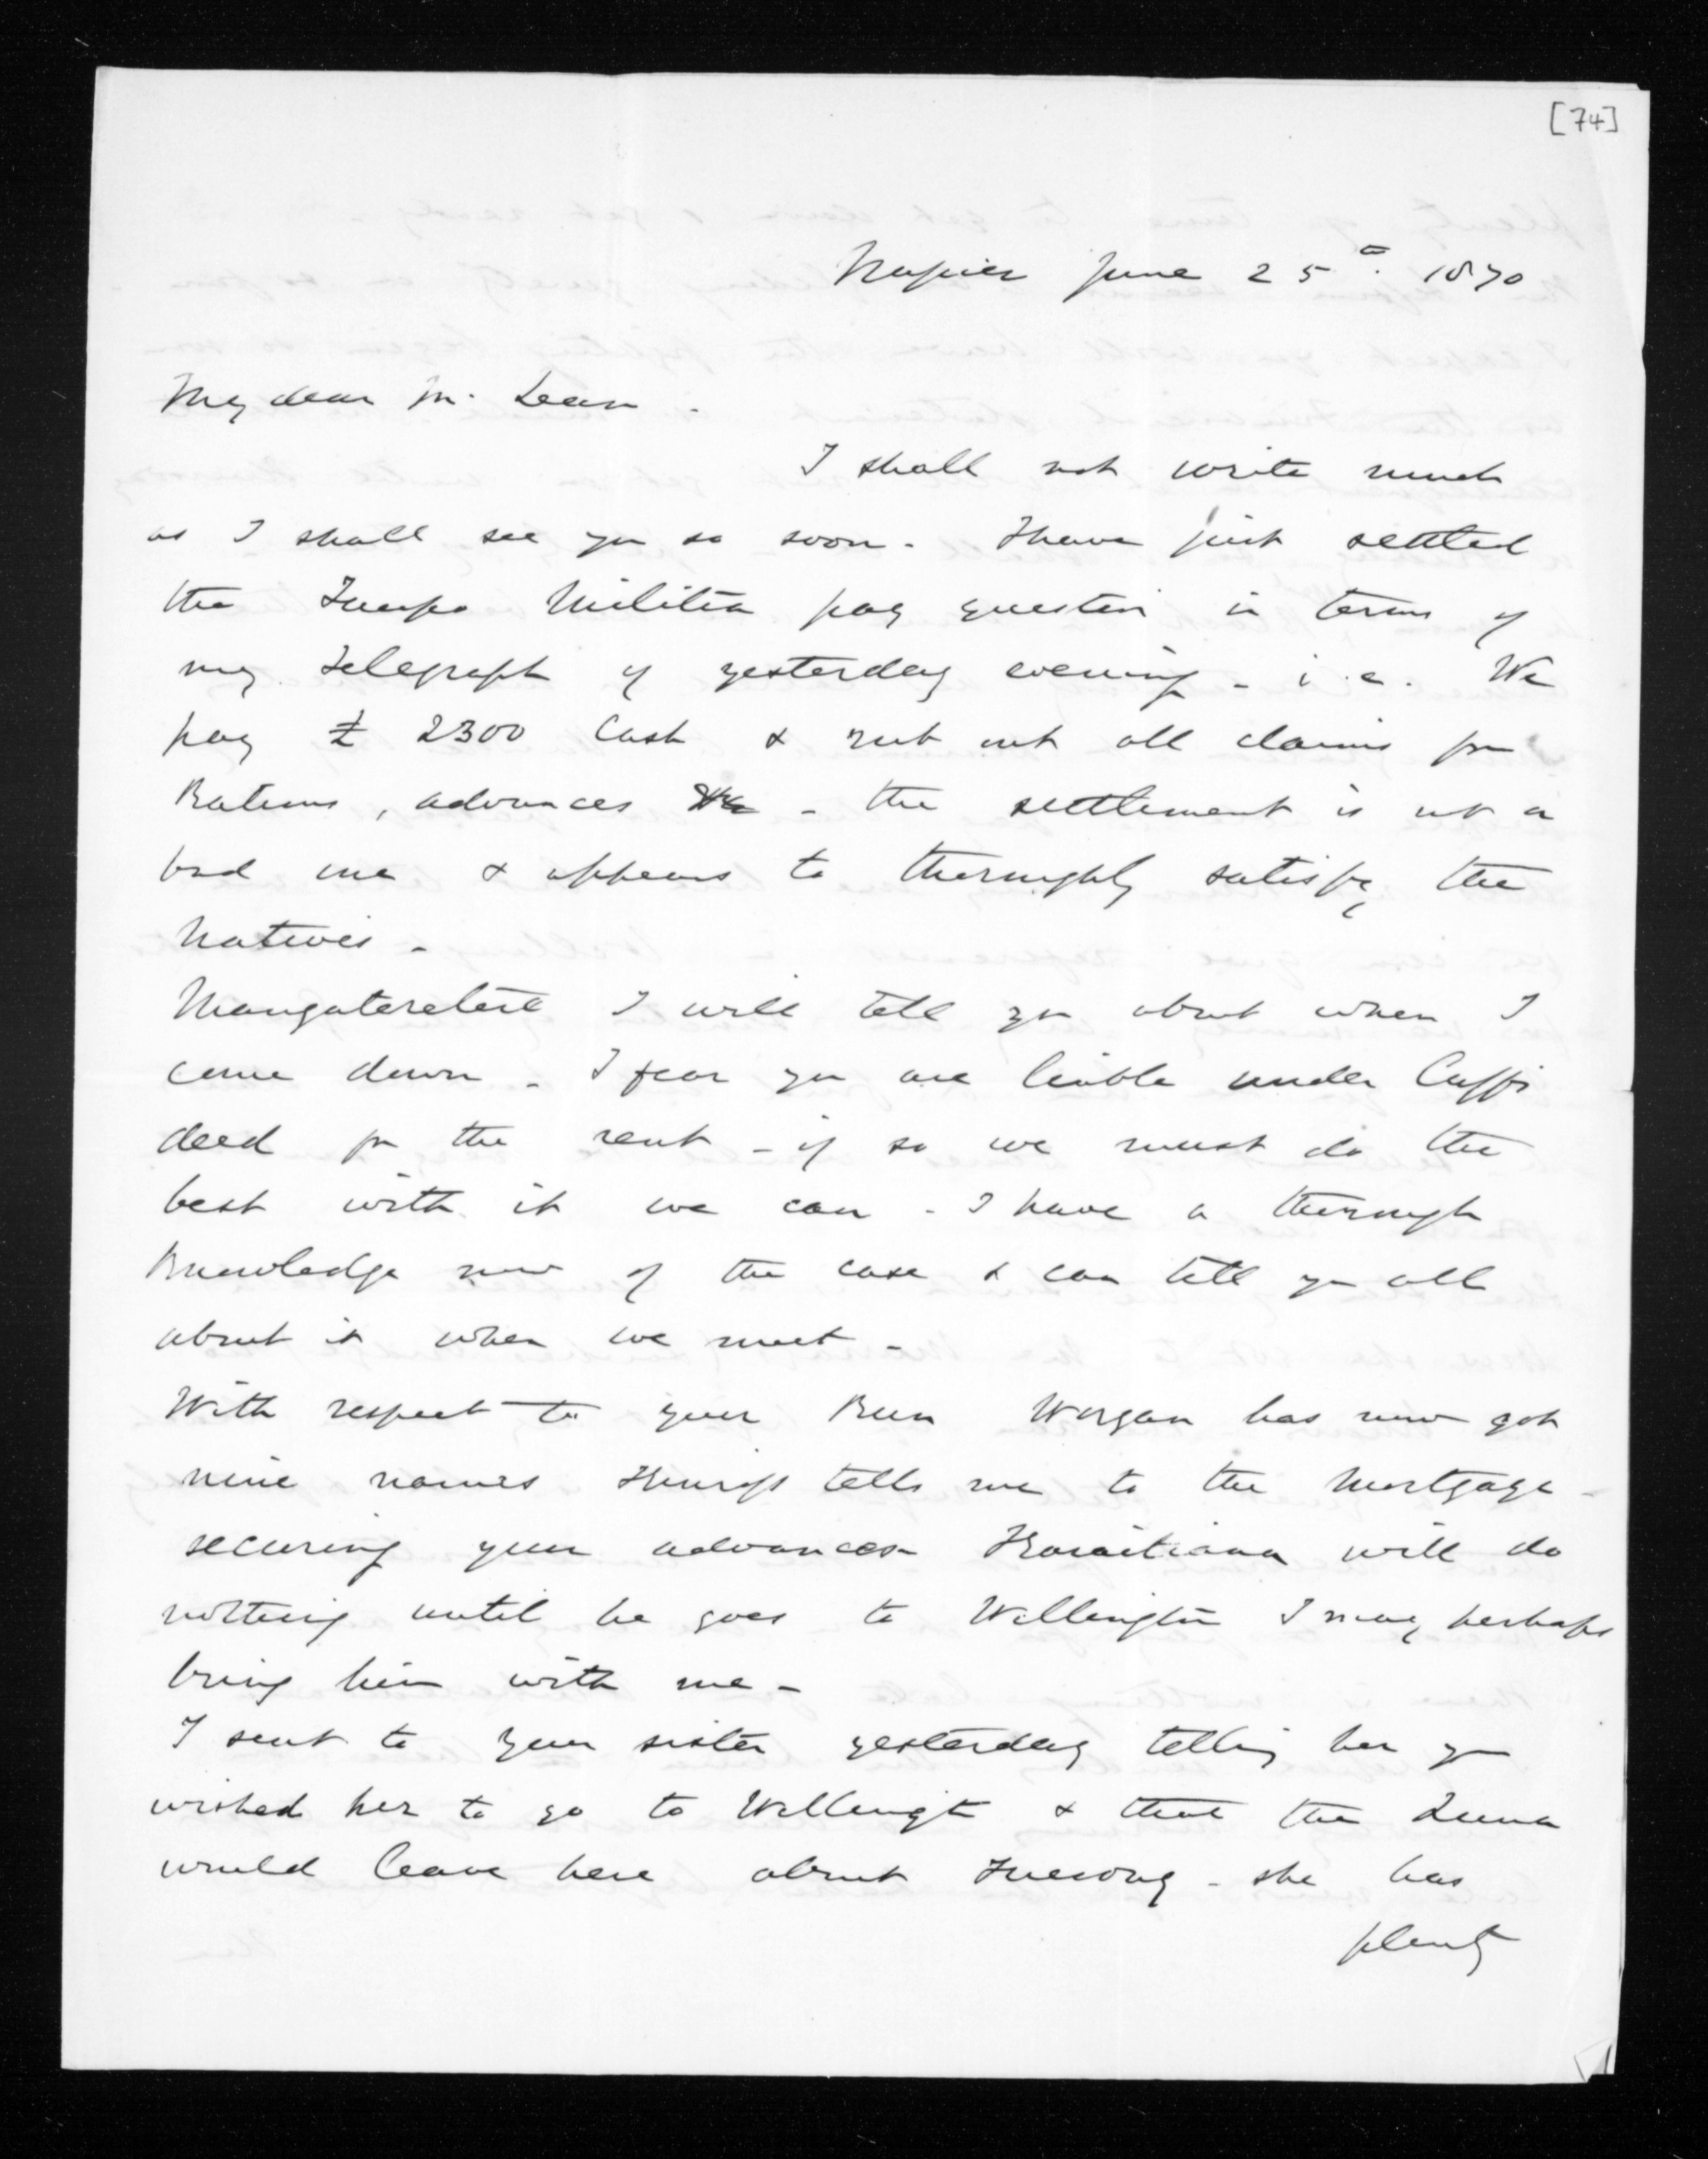 [74]
Napier June 25th. 1870
My dear Mr. Lean -
I shall not write much
as I shall see you so soon - I have just settled
the Taupo Militia pay question in terms of
my telegraph of yesterday evening - i.e. We
pay £ 2300 Cash & rub out all claims for
Rations, advances &c - the settlement is not a
bad one & appears to thoroughly satisfy the
Natives -
Mangateretere I will tell you about when I
come down - I fear you are liable under Cuffs
deed for the rent - if so we must do the
best with it we can - I have a thorough
Knowledge now of the case & can tell you all
about it when we meet -
With respect to your Run Worgan has now got
nine names tells me to the Mortgage -
securing your advances - Karaitiana will do
nothing until he goes to Wellington I may perhaps
bring him with me -
I sent to your sister yesterday telling her you
wished her to go to Wellingtn & that the Luna
would leave here about Tuesday - she has
plenty